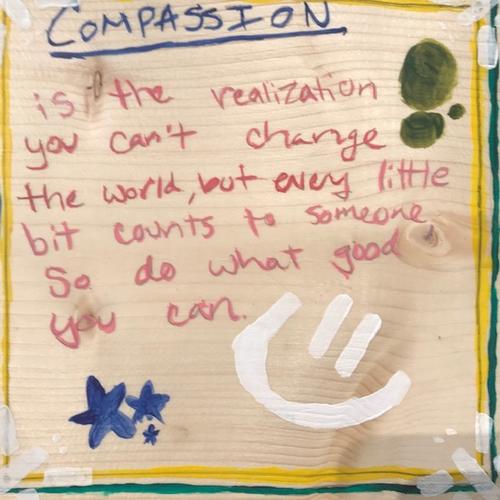 COMPASSION
is the realization
you can't change
the world, but every little
bit counts to someone
So do what good
you can.